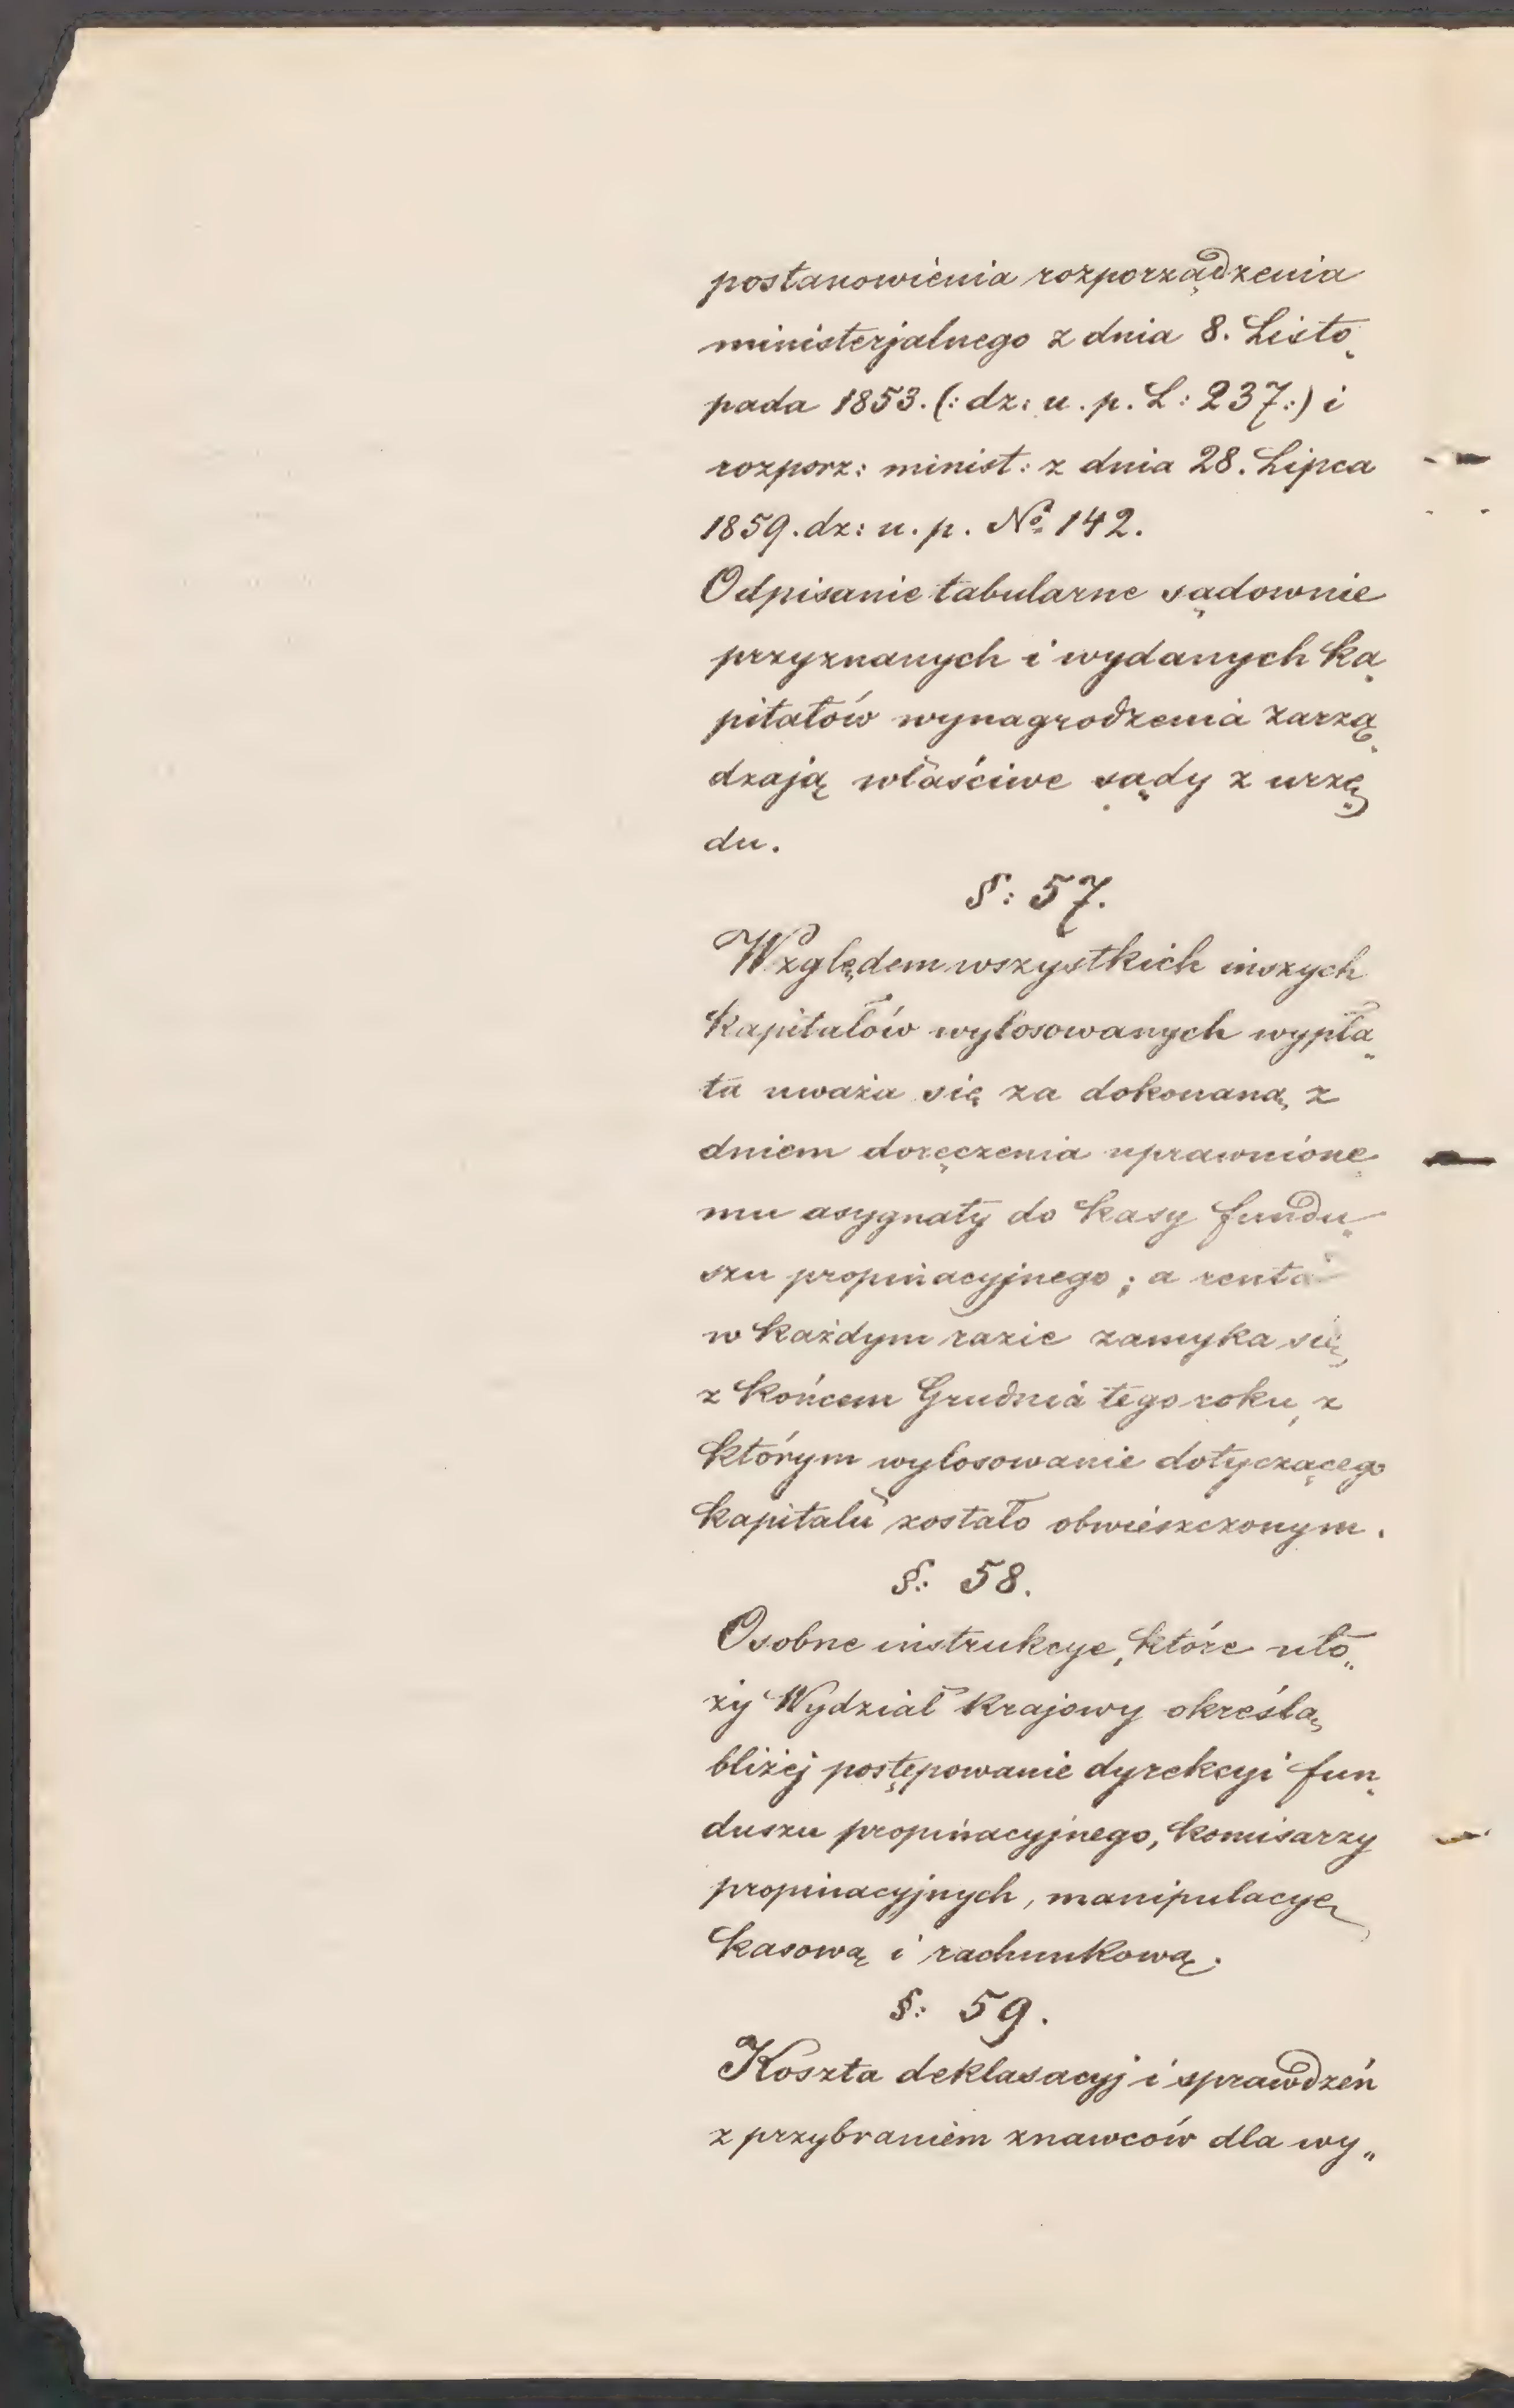 postanowienia rozporządzenia
ministerjalnego z dnia 8. Listo„
pada 1853. (: dz: u. p. L: 237:) i
rozporz: minist: z dnia 28. Lipca
1859. dz: u. p. No 142.
Odpisanie tabularne sądownie
przyznanych i wydanych ka„
pitałów wynagrodzenia zarzą„
dzają właściwe sądy z urzę„
du.
§: 57.
Względem wszystkich inszych
kapitałów wylosowanych wypła„
ta uważa się za dokonaną z
dniem doręczenia uprawnione„
mu asygnaty do kasy fundu„
szu propinacyjnego; a renta
w każdym razie zamyka się,
z końcem Grudnia tego roku, z
którym wylosowanie dotyczącego
kapitału zostało obwieszczonym.
§: 58.
Osobne instrukcye, które uło„
ży Wydział krajowy określą
bliżej postępowanie dyrekcyi fun„
duszu propinacyjnego, komisarzy
propinacyjnych, manipulacyę
kasową i rachunkową.
§: 59.
Koszta deklasacyj i sprawdzeń
z przybraniem znawców dla wy„